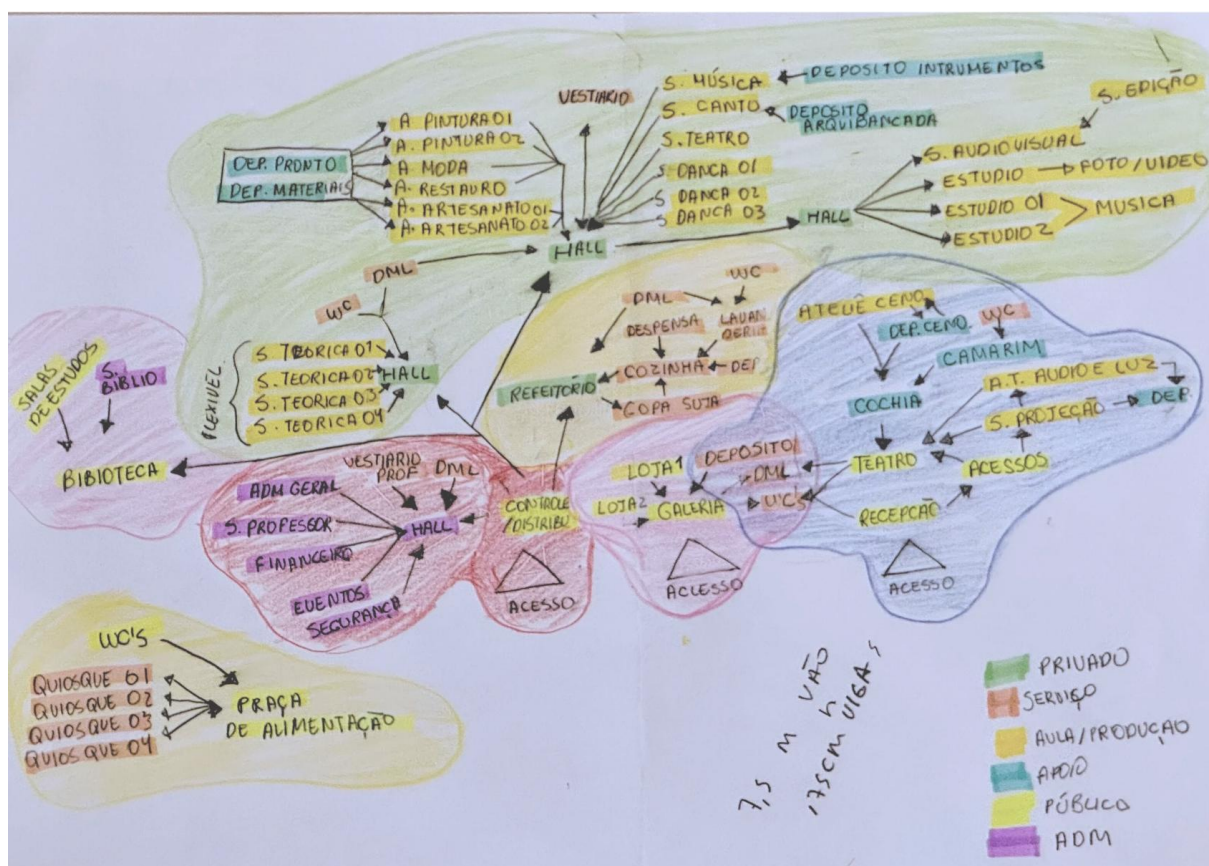 DEP. PRONTO
DEP. MATERIAIS
A PINTURA 01
A. PINTURA 02
A MODA
A. RESTAURO
A. ARTESANATO 01
A. ARTESANATO 02
VESTIARIO
S. MÚSICA
DEPOSITO INTRUMENTOS
S. CANTO
DEPOSITO
ARQUIBANCADA
S. TEATRO
S. DANCA 01
S DANCA 02
S DANCA 03
HALL
HALL
S. EDIÇÃO
S. AUDIOVISUAL
ESTUDIO
FOTO/VIDEO
ESTUDIO 01
MUSICA
ESTUDIO 2
DML
WC
S. TEORICA 01
S. TEORICA 02
S. TEORICA 03
S. TEORICA 04
HALL
SALAS
DE ESTUDOS
S.
BIBLIO
BIBIOTECA
DML
WC
DESPENSA
COZINHA
DEP
REFEITÓRIO
COPA SUJA
DEP. CENO.
WC
CAMARIM
COCHIA
A.T. AUDIO E LUZ
S. PROJEÇÃO
DEP.
TEATRO
ACESSOS
RECEPCÃO
ACESSO
LOJA 1
LOJA 2
GALERIA
DEPOSITO
DML
WC's
ACLESSO
VESTIARIO
PROF
DML
ADM GERAL
S. PROFESSOR
FINANCEIRO
EVENTOS
SEGURANÇA
HALL
CONTROLE
/DISTRIBU
ACESSO
WC'S
QUIOSQUE 01
QUIOSQUE 02
QUIOSQUE 03
QUIOSQUE 04
PRAÇA
DE ALIMENTAÇÃO
7,5 M VÃO
h
175CM VIGAS
PRIVADO
SERVIÇO
AULA/PRODUÇAO
APOIO
PÚBLICO
ADM